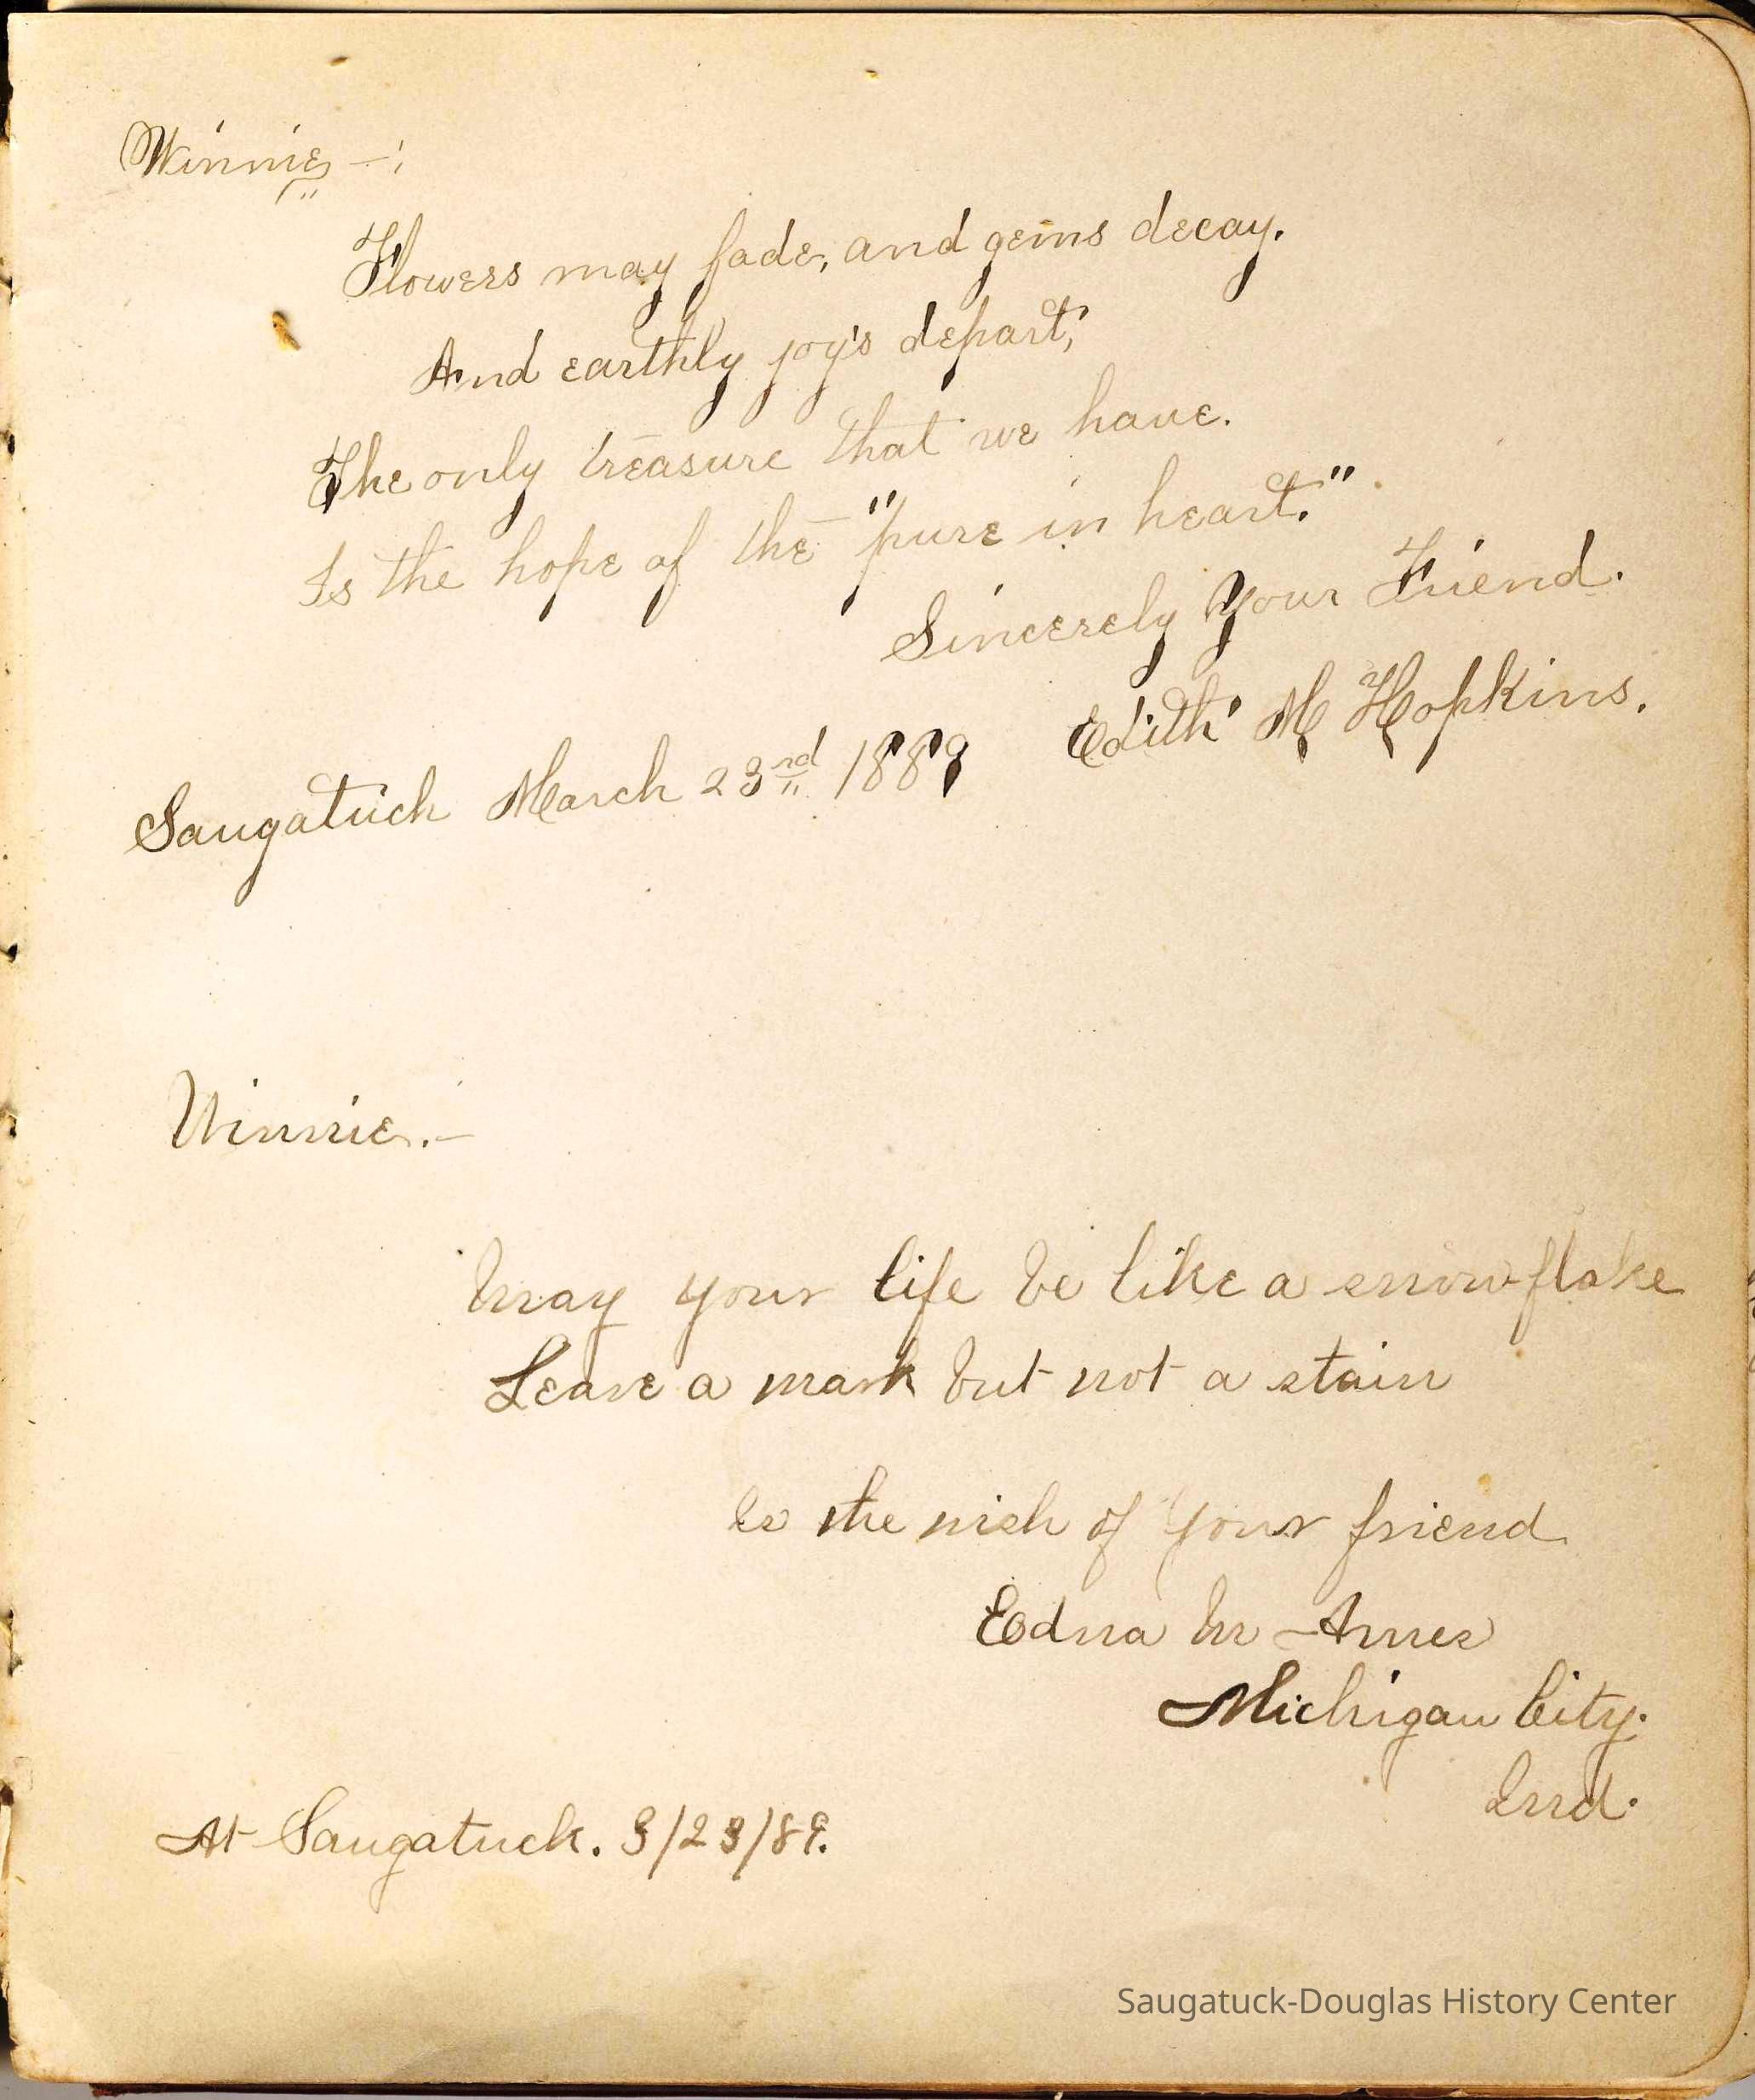 Winnie —;
Flowers may fade, and gems decay.
And earthly joys depart;
The only treasure that we have.
Is the hope of the "pure in heart."
Sincerely Your Friend.
Edith M Hopkins.
Saugatuck March 23rd 1889
Winnie.—
May your life be like a snowflake
Leave a mark but not a stain
Is the wish of your friend
Edna M Ames
Michigan City.
Ind.
At Saugatuck. 3/23/89.
Saugatuck-Douglas History Center